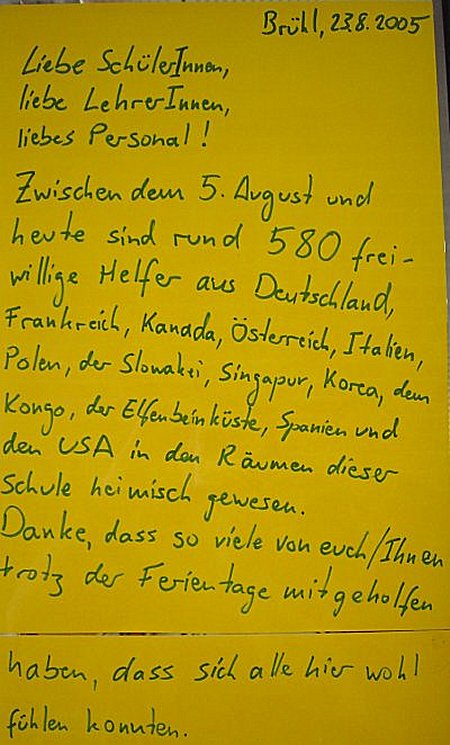 Brühl, 23.8.2005
Liebe SchülerInnen,
liebe LehrerInnen,
liebes Personal!
Zwischen dem 5. August und
heute sind rund 580 frei-
willige Helfer aus Deutschland,
Frankreich, Kanada, Österreich, Italien,
Polen, der Slowakei, Singapur, Korea, dem
Kongo, der Elfenbeinküste, Spanien und
den USA in den Räumen dieser
Schule heimisch gewesen.
Danke, dass so viele von euch/Ihnen
trotz der Ferientage mitgeholfen
haben, dass sich alle hier wohl
fühlen konnten.